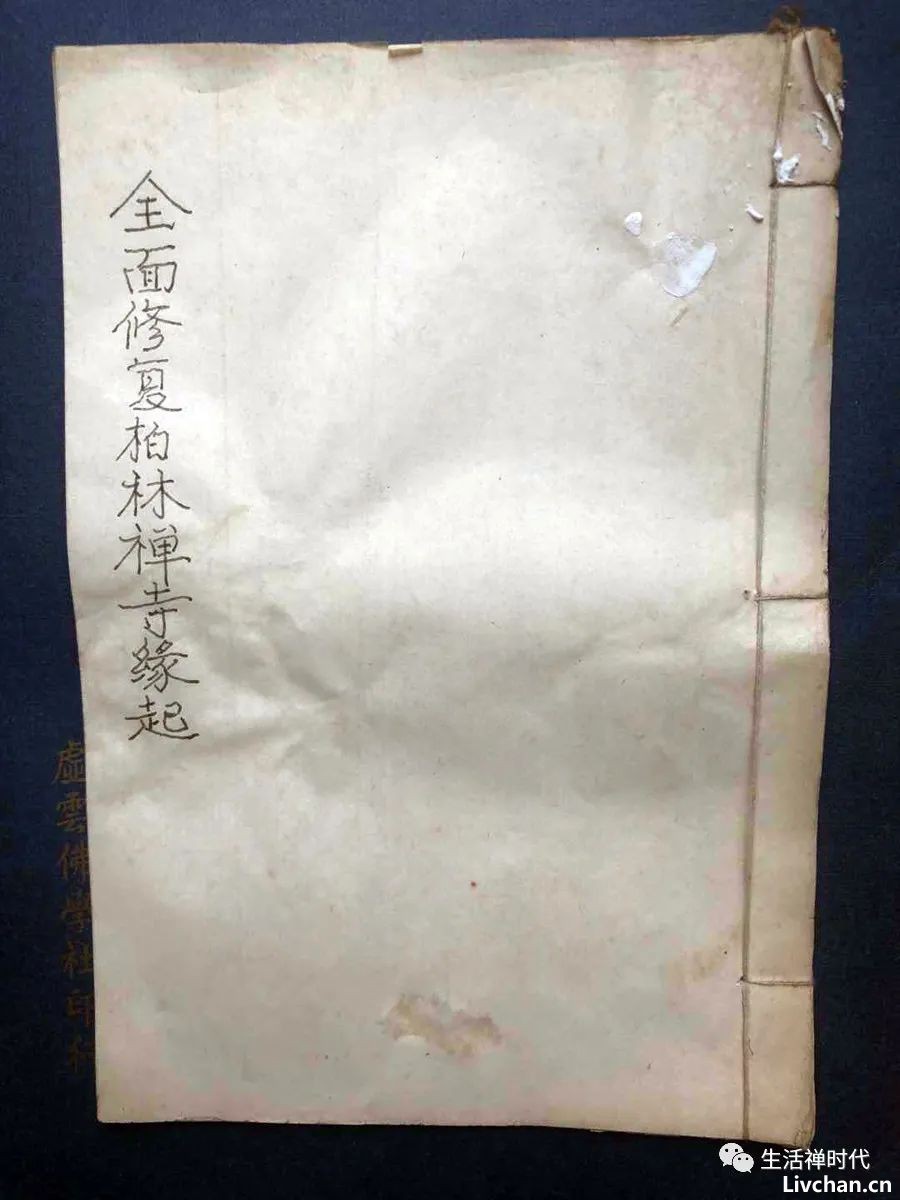 全面修复柏林禅寺緣起
虛雲佛學社印
生活禅时代
Livchan.cn